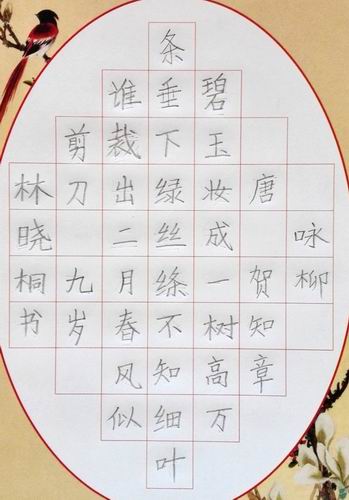 咏柳
唐 贺知章
碧玉妆成一树高万
条垂下绿丝绦不知细叶
谁裁出二月春风似
剪刀 九岁
林晓桐书